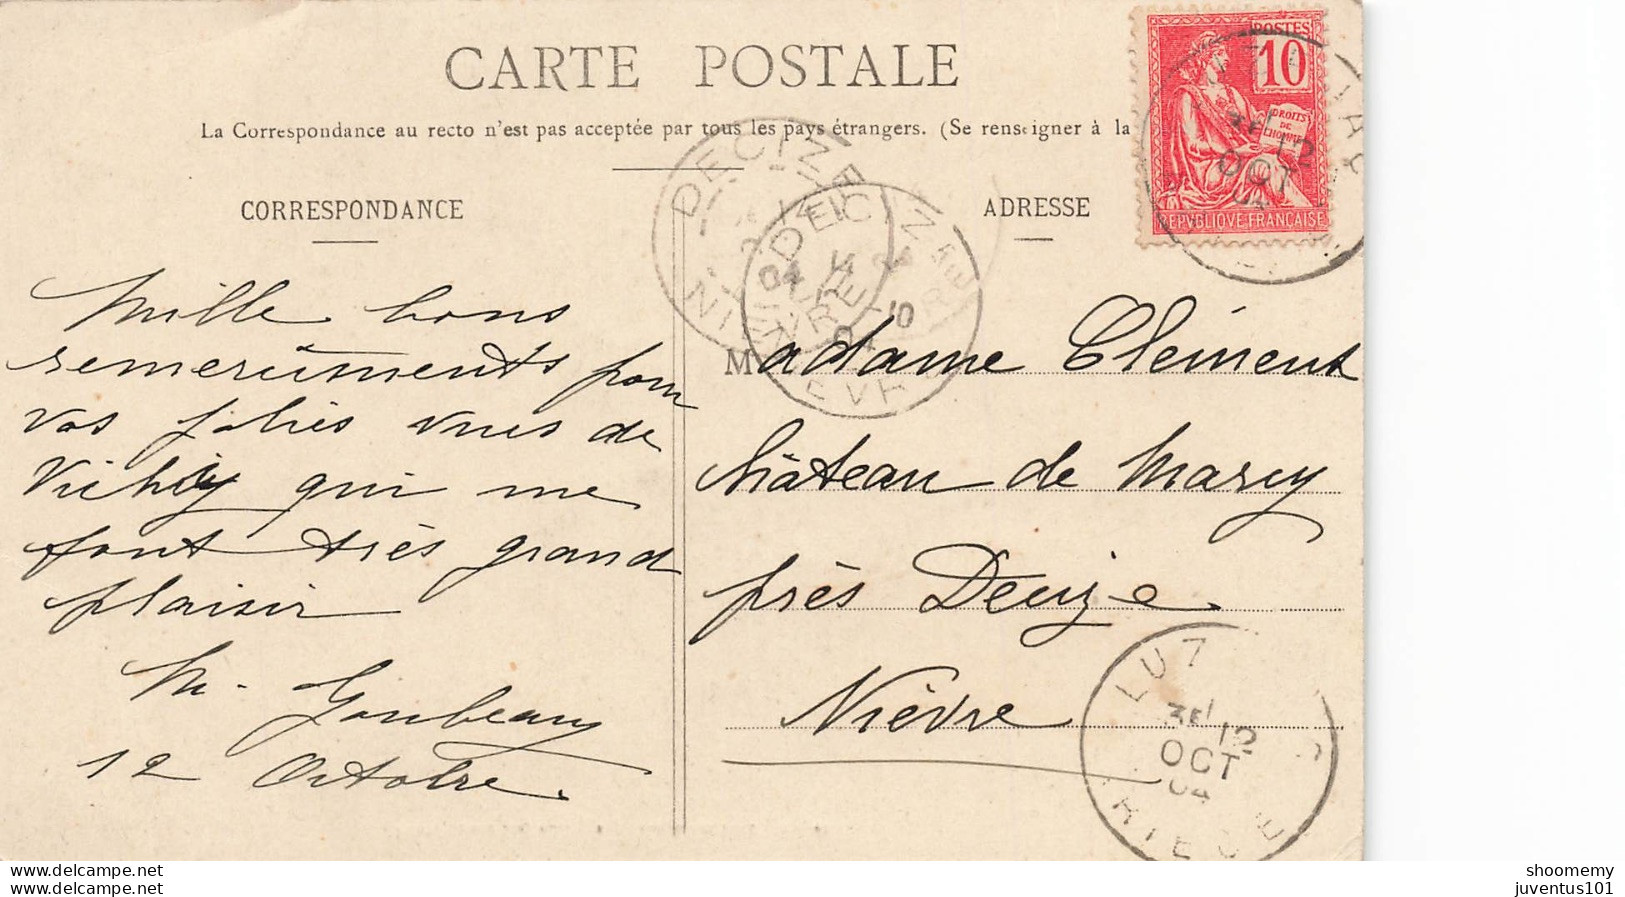 CARTE POSTALE
La Correspondance au recto n'est pas acceptée par tous les pays étrangers. (Se renseigner à la
CORRESPONDANCE
ADRESSE
POSTES
10
DROITS
DE
L'HOMME
REPVBLIQUE FRANÇAISE
12
OCT
04
DECIZE
NIEVRE
DECIZE
14
-10
04
NIEVRE
Mille bons
remerciments pour
vos jolies vues de
Vichy qui me
font très grand
plaisir
M. Goubeau
12 Octobre.
Madame Clément
Château de Marcy
près Decize
Nièvre
LUZ
3E
12
OCT
04
ARIEGE
shoomemy
juventus101